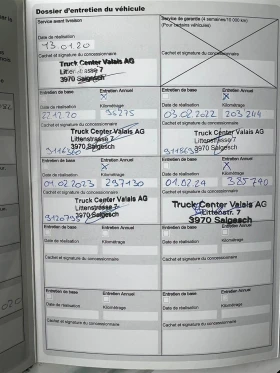 Dossier d'entretien du véhicule
Service avant livraison
Service de garantie (4 semaines/10 000 km)
(Pour certains véhicules)
Date de réalisation
13.01.20
Cachet et signature du concessionnaire
Truck Center Valais AG
Littenstrasse 7
3970 Salgesch
Entretien de base Entretien Annuel
X
Date de réalisation Kilométrage
22.12.20 96275
Cachet et signature du concessionnaire
Truck Center Valais AG
Littenstrasse 7
3970 Salgesch
Entretien de base Entretien Annuel
X
Date de réalisation Kilométrage
03.02.2022 203244
Cachet et signature du concessionnaire
Truck Center Valais AG
Littenstrasse 7
3970 Salgesch
Entretien de base Entretien Annuel
X
Date de réalisation Kilométrage
01.02.2023 297130
Cachet et signature du concessionnaire
Truck Center Valais AG
Littenstrasse 7
3970 Salgesch
Entretien de base Entretien Annuel
X
Date de réalisation Kilométrage
01.02.24 385740
Cachet et signature du concessionnaire
Truck Center Valais AG
Littenstr. 7
3970 Salgesch
Entretien de base Entretien Annuel
Date de réalisation Kilométrage
Cachet et signature du concessionnaire
Entretien de base Entretien Annuel
Date de réalisation Kilométrage
Cachet et signature du concessionnaire
Entretien de base Entretien Annuel
Date de réalisation Kilométrage
Cachet et signature du concessionnaire
Entretien de base Entretien Annuel
Date de réalisation Kilométrage
Cachet et signature du concessionnaire